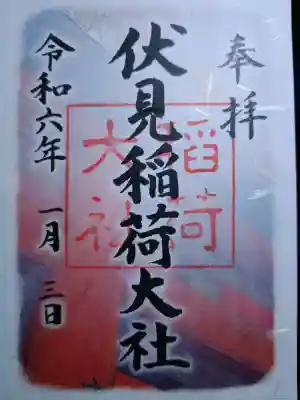 奉拝
伏見稲荷大社
稲荷
大社
令和六年 一月 三日